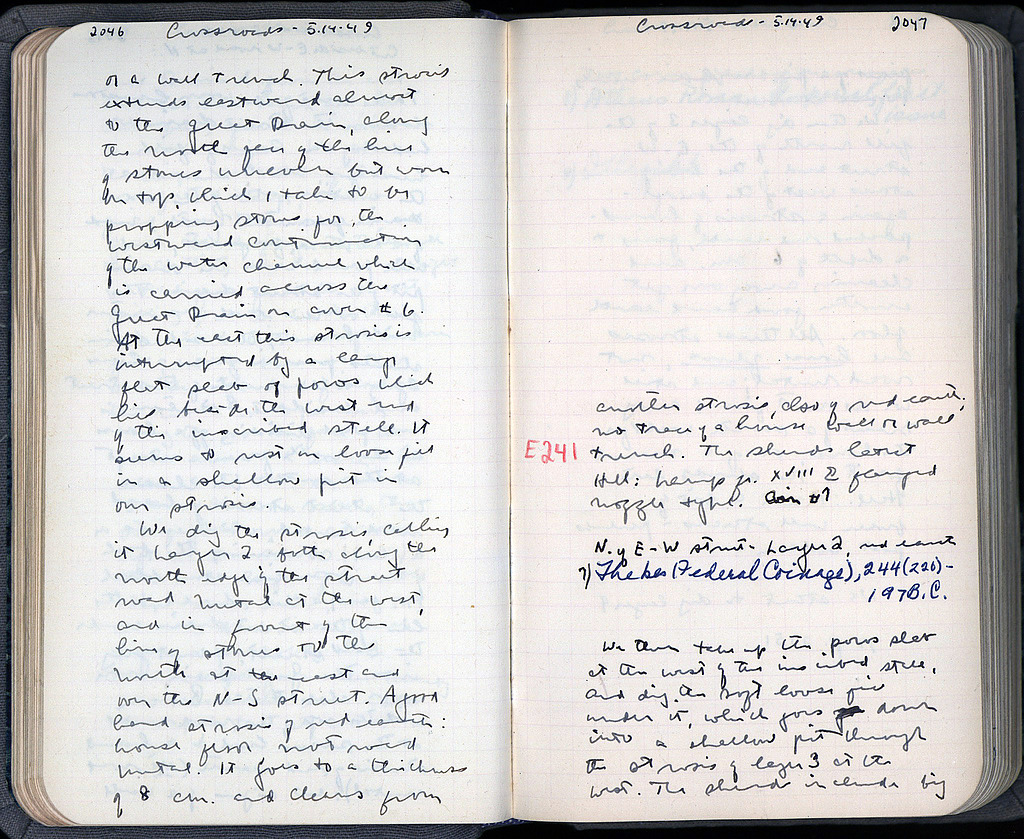 2046 Crossroads - 5.14.49
or a wall trench. This strosis
extends eastward almost
to the great Drain, along
the north face of the line
of stones uneven but worn
on top, which I take to be
propping stones for the
westward continuation
of the water channel which
is carried across the
Great Drain on cover #6.
At the east this strosis is
interrupted by a large
flat slab of poros which
lies beside the west end
of the inscribed stele. It
seems to rest on loose fill
in a shallow pit in
our strosis.
We dig the strosis, calling
it Layer 2 both along the
north edge of the street
road metal at the west,
and in front of the
line of stones to the
north at the east and
over the N-S street. A good
hard strosis of red earth:
house floor not road
metal. It goes to a thickness
of 8 cm. and cleans from
Crossroads - 5.14.49 2047
another strosis, also of red earth;
no trace of a house wall or wall
trench. The sherds latest
Hell: lamp fr. XVIII flanged
E241
nozzle type. Coin #7
N. of E-W street - Layer 2, red earth
7) Thebes (Federal Coinage), 244(220)-
197 B.C.
We then take up the poros slab
at the west of the inscribed stele,
and dig the soft loose fill
under it, which goes down
into a shallow pit through
the strosis of layer 3 at the
west. The sherds include big